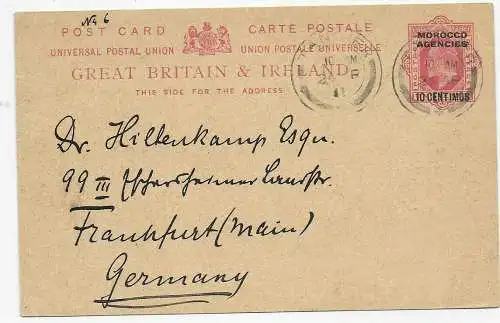 No 6
POST CARD CARTE POSTALE
UNIVERSAL POSTAL UNION UNION POSTALE UNIVERSELLE
GREAT BRITAIN & IRELAND
THIS SIDE FOR THE ADDRESS
MOROCCO
AGENCIES
10 CENTIMOS
Dr. Hiltenkamp Esqu.
99 III Eschersheimer Landstr.
Frankfurt (Main)
Germany